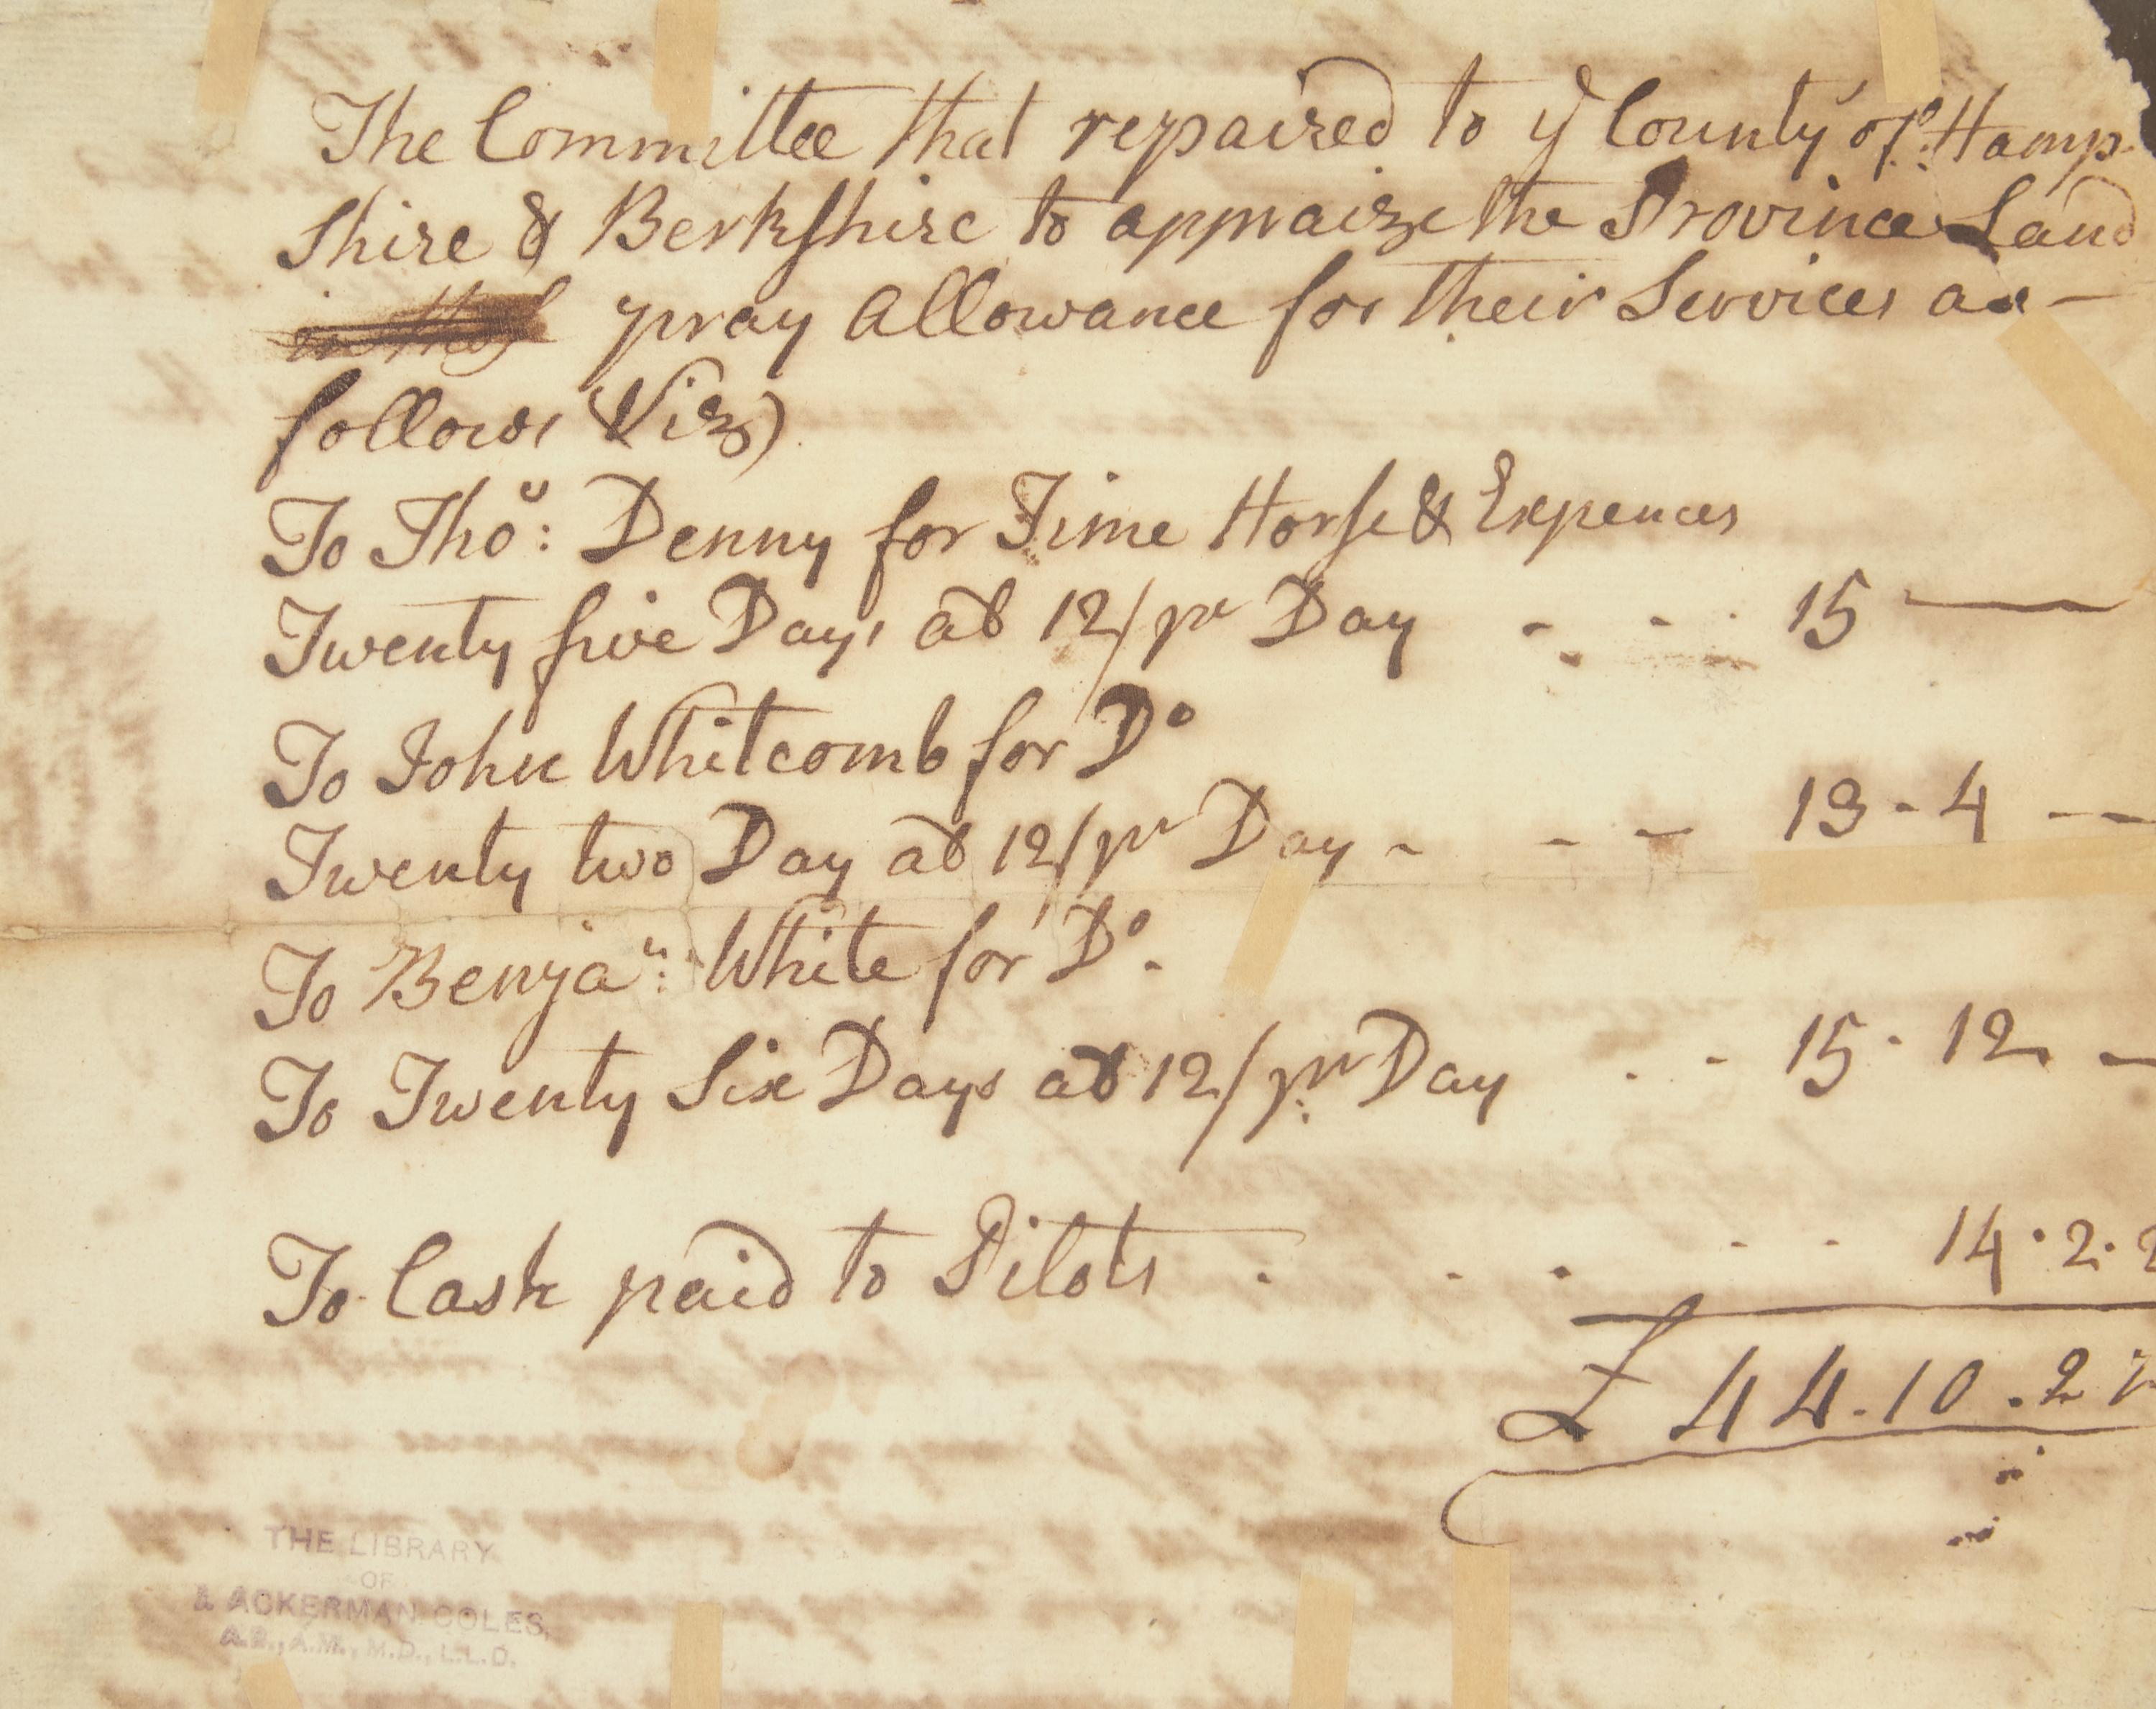 The Committee that repaired to yͤ County of Hamp-
shire & Berkshire to appraize the Province Land
pray Allowance for their Services as —
follows (Viz)
To Thoˢ: Denny for Time Horse & Expences
Twenty five Days at 12/ pr Day - - - 15 —
To John Whitcomb for Dº
Twenty two Day at 12/ pr Day - - - 13 - 4 --
To Benjaⁿ: White for Dº.
To Twenty Six Days at 12/ pr Day . - 15 - 12 —
To Cash paid to Pilots . . . . . 14 . 2 .
£ 44 . 10 . 2
THE LIBRARY
OF
J. ACKERMAN COLES,
A.B., A.M., M.D., L.L.D.